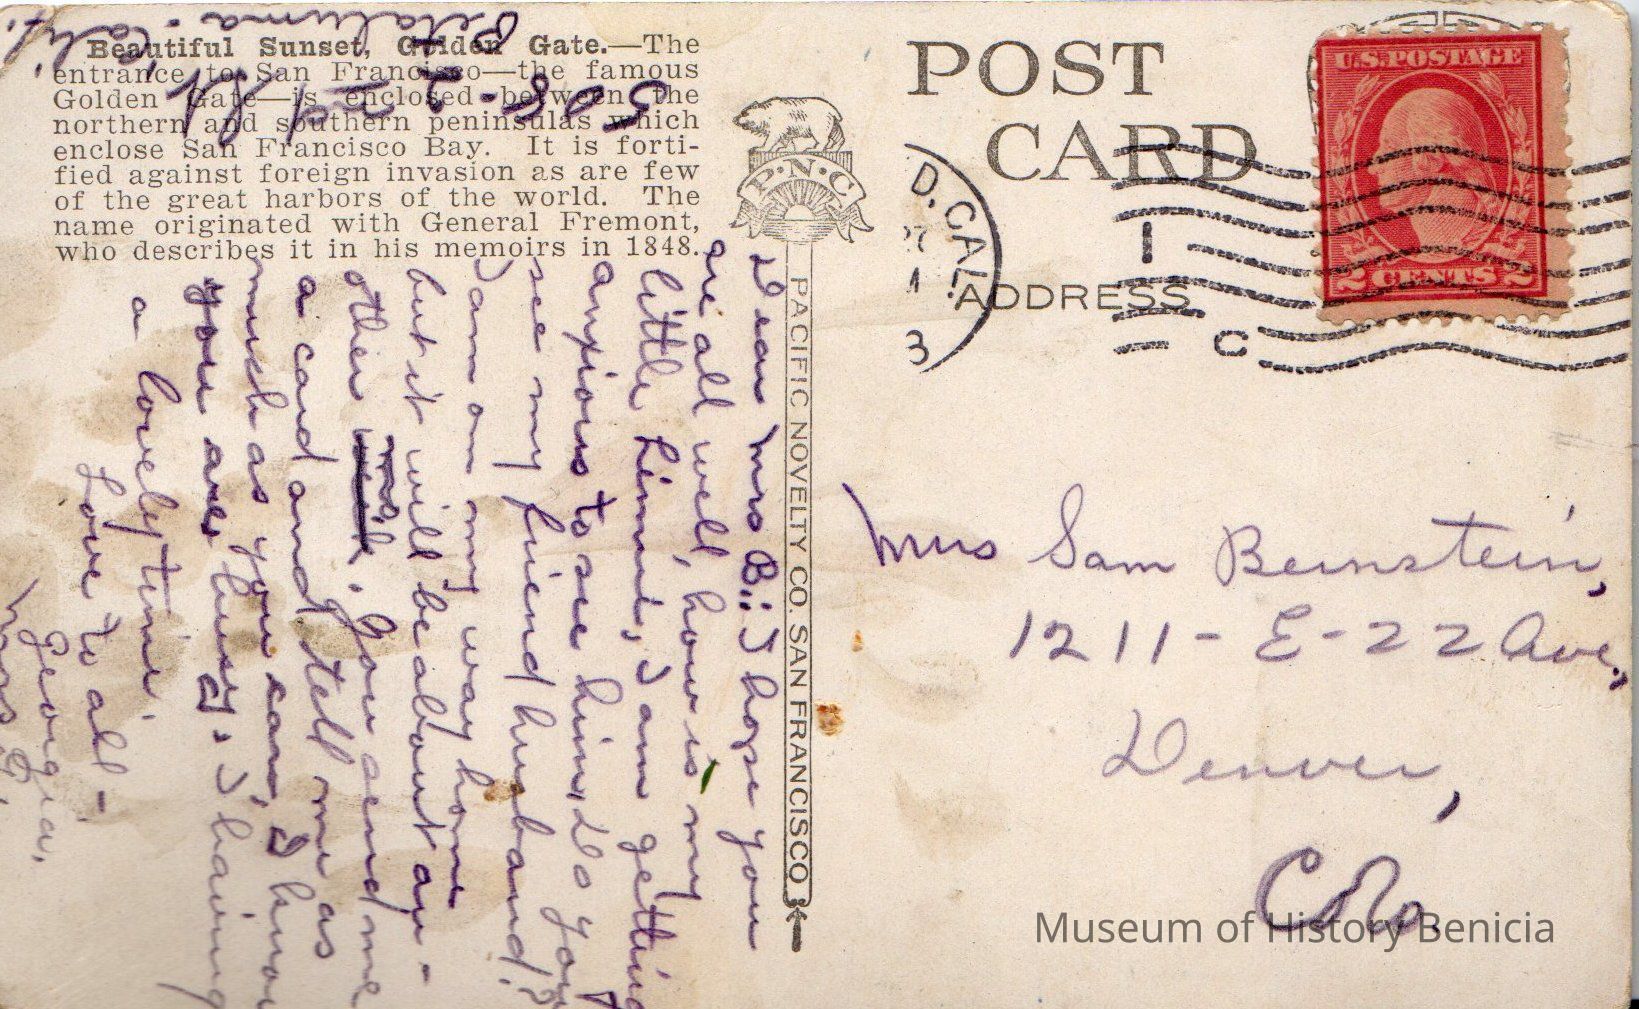 Beautiful Sunset, Golden Gate.—The
entrance to San Francisco—the famous
Golden Gate—is enclosed between the
northern and southern peninsulas which
enclose San Francisco Bay. It is forti-
fied against foreign invasion as are few
of the great harbors of the world. The
name originated with General Fremont,
who describes it in his memoirs in 1848.
Petaluma.
Calif.
528-2
POST
CARD
P·N·C
PACIFIC NOVELTY CO. SAN FRANCISCO
ADDRESS
D. CAL.
1
3
C
U.S. POSTAGE
2 CENTS 2
Dear Mrs B:: I hope you
are all well, how is my
little Jimmie, I am getting
anxious to see him, Do you
see my friend husband?
I am on my way home
but it will be about an-
other mo. You send me
a card and tell me as
much as you can, I know
you are busy. I having
a lovely time.
Love to all-
Georgia.
Mrs Sam Bernstein,
1211-E-22 Ave.,
Denver,
Colo.
Museum of History Benicia